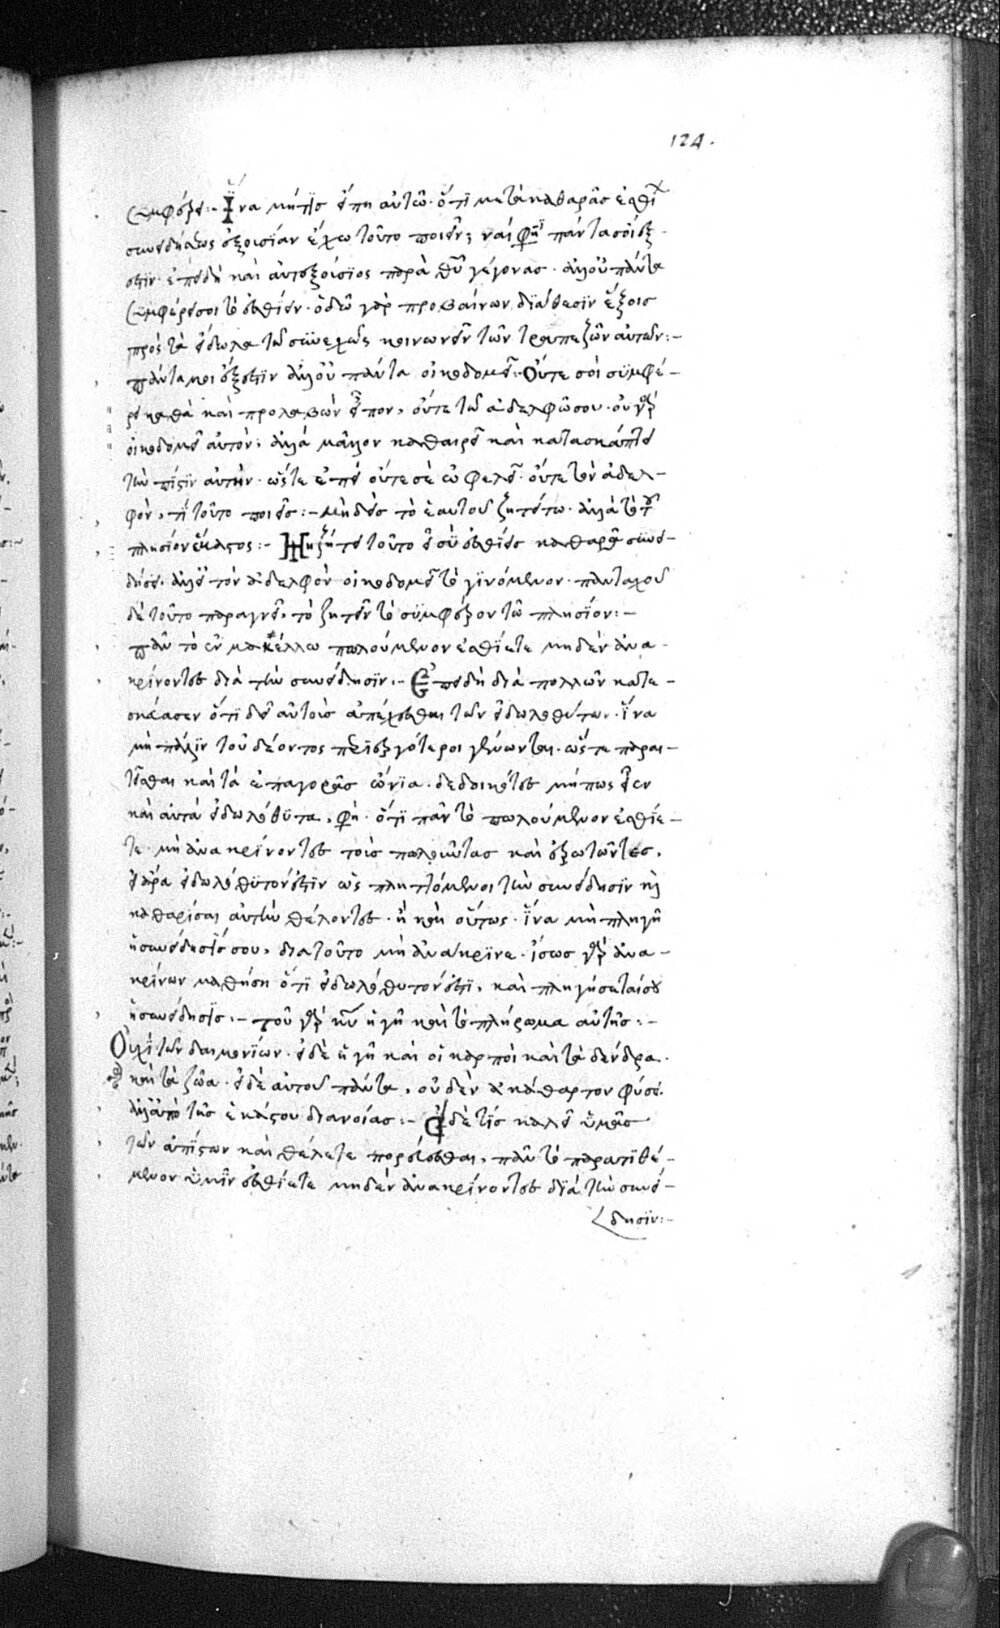 124.
συμφέρει:- Ἵνα μήτις εἴπη αὐτῶ· ὅτι μετὰ καθαρᾶς ἐσθίω
συνειδήσεως ἐξουσίαν ἔχω τοῦτο ποιεῖν; ναί φησϊ πάντα σοι ἔξε-
στϊν· ἐπειδὴ καὶ αὐτεξούσϊος παρὰ θεοῦ γέγονας· ἀλλ' οὐ πάντα
συμφέρει σοι τὸ ἐσθίειν· ὁδῶ γὰρ προβαίνων, διάθεσϊν ἕξεις
πρὸς τὰ εἴδωλα τῶ συνεχῶς κοινωνεῖν τῶν τραπεζῶν αὐτῶν:-
πάντα μοι ἔξεστϊν ἀλλ' οὐ πάντα οἰκοδομεῖ:- Οὔτε σοὶ συμφέ-
ρει καθὰ καὶ προλαβὼν εἶπον, οὔτε τῶ ἀδελφῶ σου· οὐ γὰρ
οἰκοδομεῖ αὐτὸν, ἀλλὰ μᾶλλον καθαιρεῖ καὶ κατασκάπτει
τὴν πίστϊν αὐτὴν· ὥστε ἐπεὶ οὔτε σὲ ὠφελεῖ· οὔτε τὸν ἀδελ-
φὸν, τί τοῦτο ποιεῖς:- μηδεὶς τὸ ἑαυτοῦ ζητείτω· ἀλλὰ τὸ τοῦ
πλησίον ἕκαστος:- Μὴ ζήτει τοῦτο εἰ σὺ ἐσθίεις καθαρᾷ συνει-
δήσει· ἀλλ' εἰ τὸν ἀδελφὸν οἰκοδομεῖ τὸ γινόμενον· πανταχοῦ
δὲ τοῦτο παραγγέλει, τὸ ζητεῖν τὸ συμφέρον τῶ πλησίον:-
πᾶν τὸ ἐν μακέλλω πωλούμενον ἐσθίετε μηδὲν ἀνα-
κρίνοντες διὰ τὴν συνείδησϊν:- Ἐπειδὴ διὰ πολλῶν κατε-
σκεύασεν ὅτι δεῖ αὐτοὺς ἀπέχεσθαι τῶν εἰδωλοθύτων· ἵνα
μὴ πάλϊν τοῦ δέοντος περισσότεροι γένωνται· ὥστε παραι-
τεῖσθαι καὶ τὰ ἐπ' ἀγορᾶς ὤνϊα· δεδοικότες μήπως εἶεν
καὶ αὐτὰ εἰδωλόθυτα, φησὶ· ὅτι πᾶν τὸ πωλούμενον ἐσθίε-
τε· μὴ ἀνακρίνοντες τοὺς πωλοῦντας καὶ ἐξετῶντες,
εἰ ἄρα εἰδωλόθυτόν ἐστϊν ὡς πληττόμενοι τὴν συνείδησϊν καὶ
καθαρίσαι αὐτὴν θέλοντες· ἢ καὶ οὕτως· ἵνα μὴ πληγῆ
ἡ συνείδησίς σου, διατοῦτο μὴ ἀνάκρϊνε· ἴσως γὰρ ἀνα-
κρίνων μαθήση ὅτι εἰδωλόθυτόν ἐστϊ, καὶ πληγήσεταί σου
ἡ συνείδησϊς:- τοῦ γὰρ κυρίου ἡ γῆ καὶ τὸ πλήρωμα αὐτῆς:-
Οὐχὶ τῶν δαιμονίων· εἰ δὲ ἡ γῆ καὶ οἱ καρποὶ καὶ τὰ δένδρα·
καὶ τὰ ζῶα· εἰ δὲ αὐτοῦ πάντα, οὐδὲν ἀκάθαρτον φύσει·
ἀλλ' ἀπὸ τῆς ἑκάστου διανοίας:- Εἰ δέ τϊς καλεῖ ὑμᾶς
τῶν ἀπίστων καὶ θέλετε πορεύεσθαι, πᾶν τὸ παρατιθέ-
μενον ὑμῖν ἐσθίετε μηδὲν ἀνακρίνοντες διὰ τὴν συνεί-
δησϊν:-